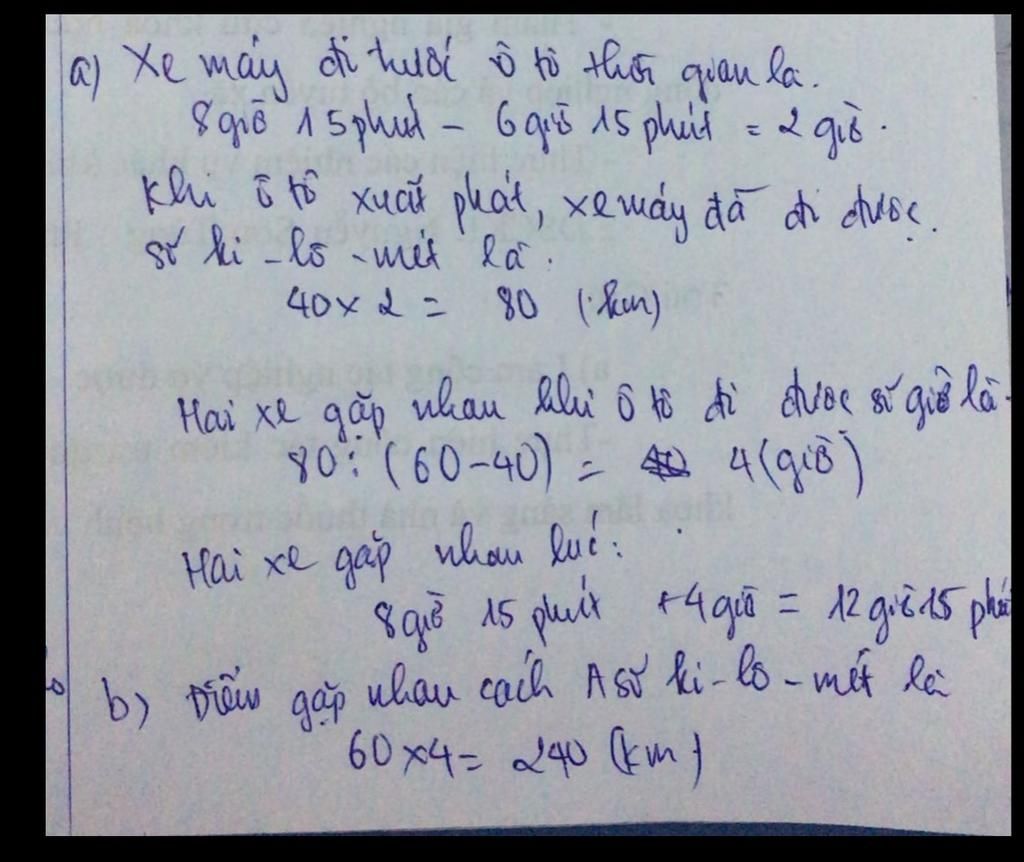 a) Xe máy đi trước ô tô thời gian là.
8 giờ 15 phút - 6 giờ 15 phút = 2 giờ.
Khi ô tô xuất phát, xe máy đã đi được
số ki-lô-mét là.
40 x 2 = 80 (km)
Hai xe gặp nhau khi ô tô đi được số giờ là.
80 : (60-40) = 4 (giờ)
Hai xe gặp nhau lúc:
8 giờ 15 phút + 4 giờ = 12 giờ 15 phú
b) Điểm gặp nhau cách A số ki-lô-mét là
60 x 4 = 240 (km)